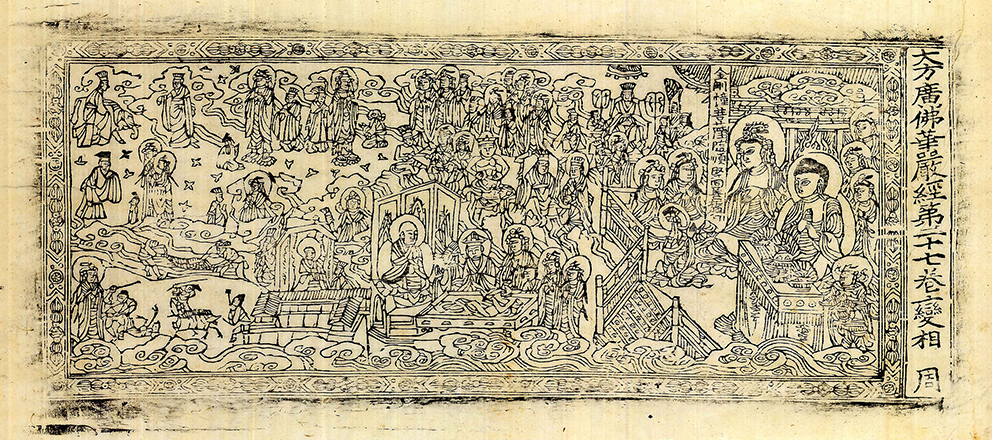 大方廣佛華嚴經第二十七卷變相 周
金剛幢菩薩